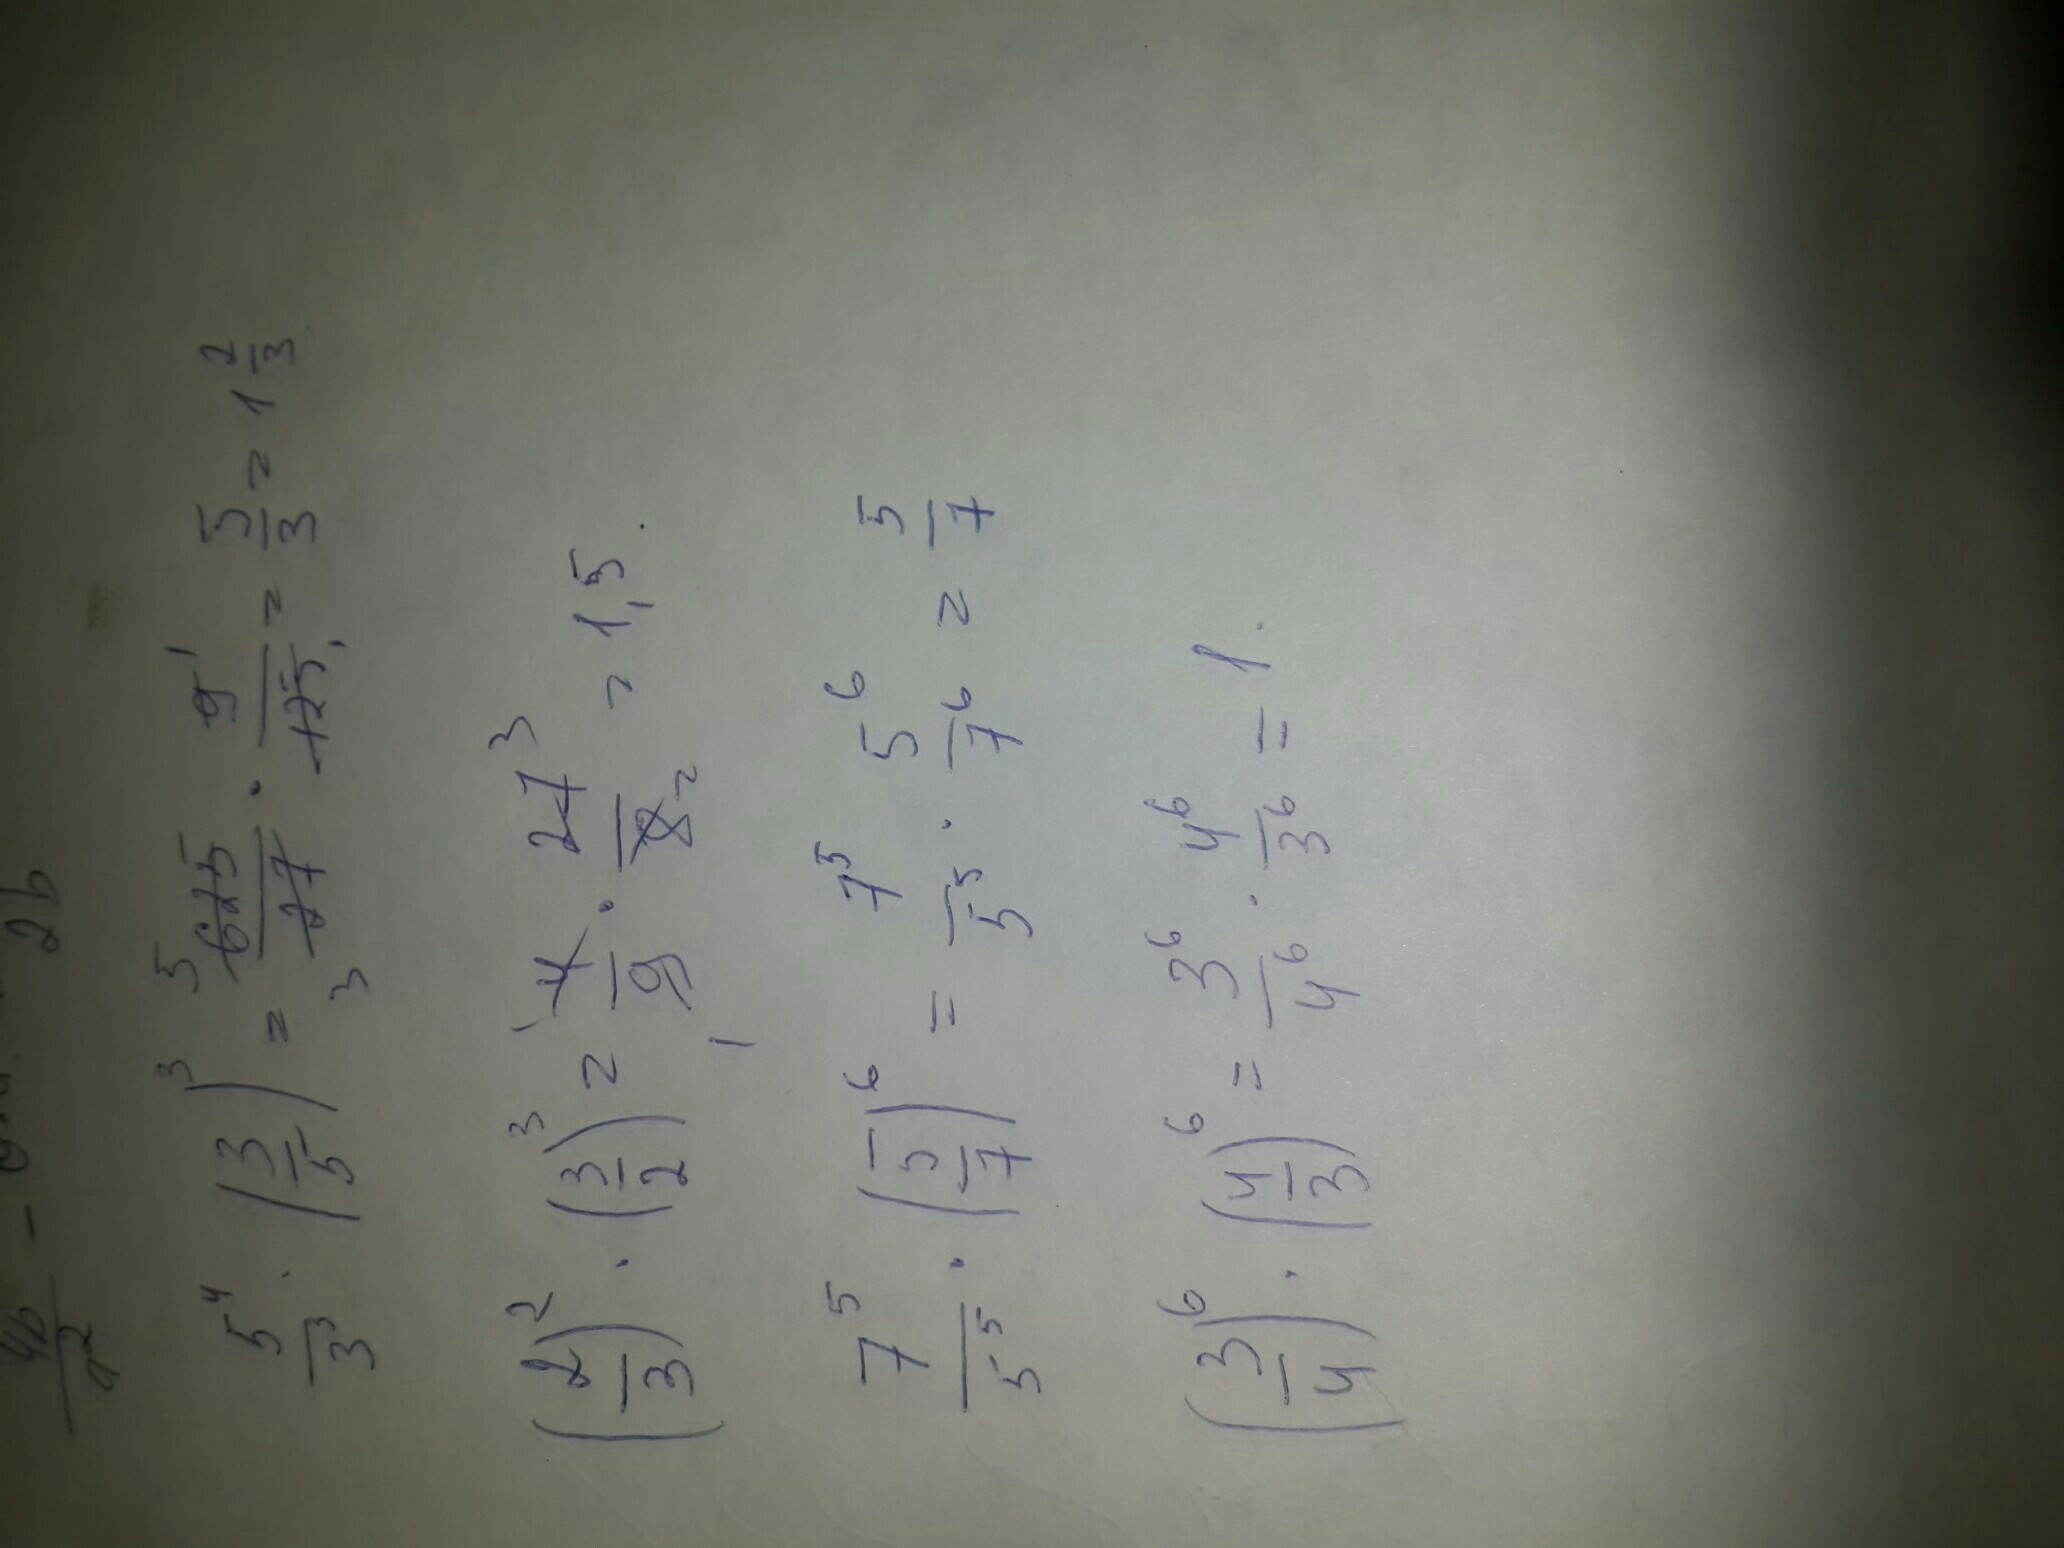 4b/a² - 2b
5⁴/3³ · (3/5)³ = 625/27 · 9/125 = 5/3 = 1 2/3
(2/3)² · (3/2)³ = 4/9 · 27/8 = 1,5.
7⁵/5⁵ · (5/7)⁶ = 7⁵/5⁵ · 5⁶/7⁶ = 5/7
(3/4)⁶ · (4/3)⁶ = 3⁶/4⁶ · 4⁶/3⁶ = 1.